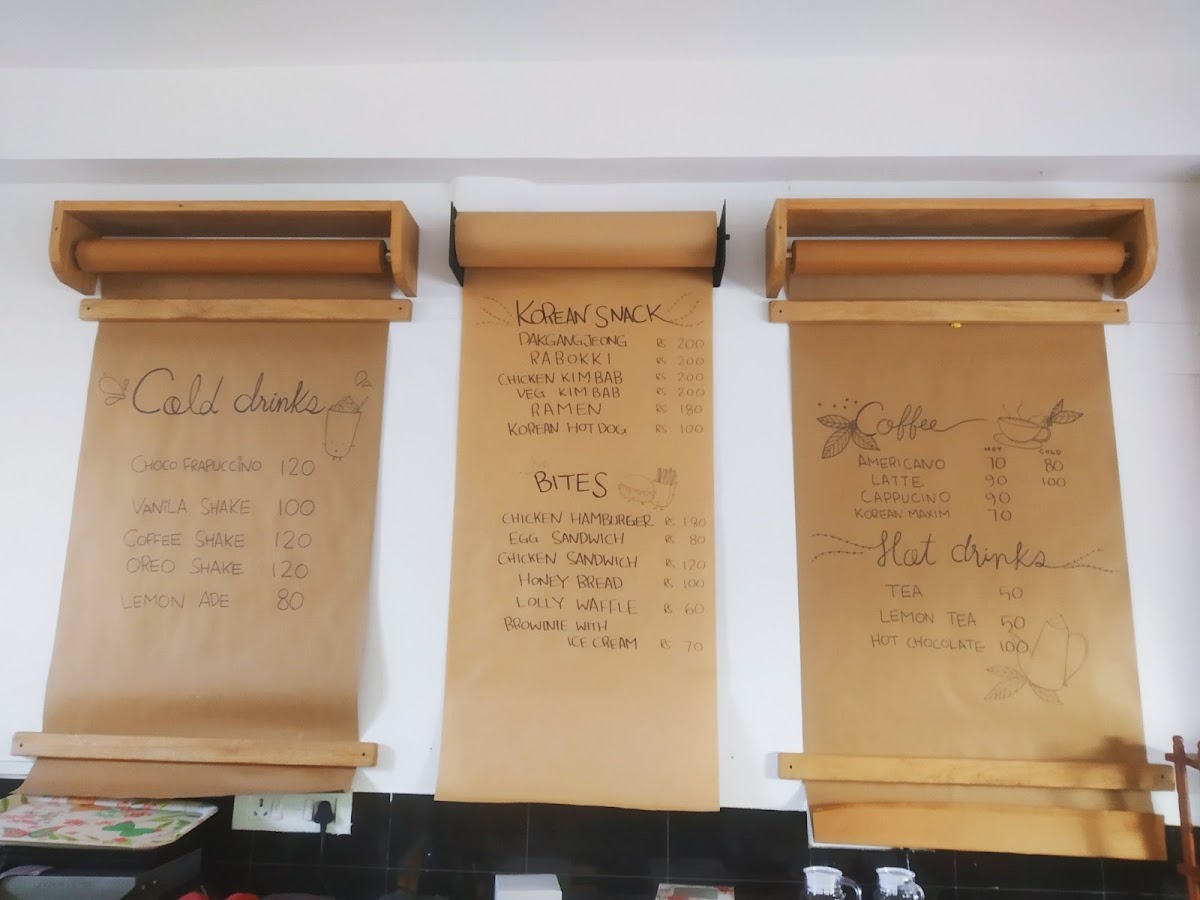 Cold drinks
CHOCO FRAPUCCINO 120
VANILA SHAKE 100
COFFEE SHAKE 120
OREO SHAKE 120
LEMON ADE 80
KOREAN SNACK
DAKGANGJEONG RS 200
RABOKKI RS 200
CHICKEN KIMBAB RS 200
VEG KIMBAB RS 200
RAMEN RS 180
KOREAN HOTDOG RS 100
BITES
CHICKEN HAMBURGER RS 180
EGG SANDWICH RS 80
CHICKEN SANDWICH RS 120
HONEY BREAD RS 100
LOLLY WAFFLE RS 60
BROWINIE WITH
ICE CREAM RS 70
Coffee
HOT COLD
AMERICANO 70 80
LATTE 90 100
CAPPUCINO 90
KOREAN MAXIM 70
Hot drinks
TEA 50
LEMON TEA 50
HOT CHOCOLATE 100